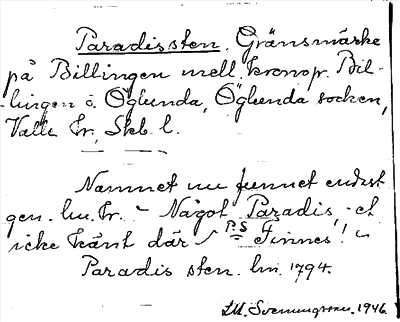 Paradissten. Gränsmärke
på Billingen mell. kronop. Bil-
-lingen o. Öglunda, Öglunda socken,
Valle hr, Skb. l.
Namnet nu funnet endast
gen. lm. hr. - Något Paradis, -et
icke känt där P.S Finnes!
Paradis sten. lm. 1794.
1946.